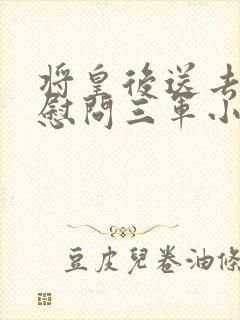 將皇後送去
慰問三軍小
豆皮兒卷油條